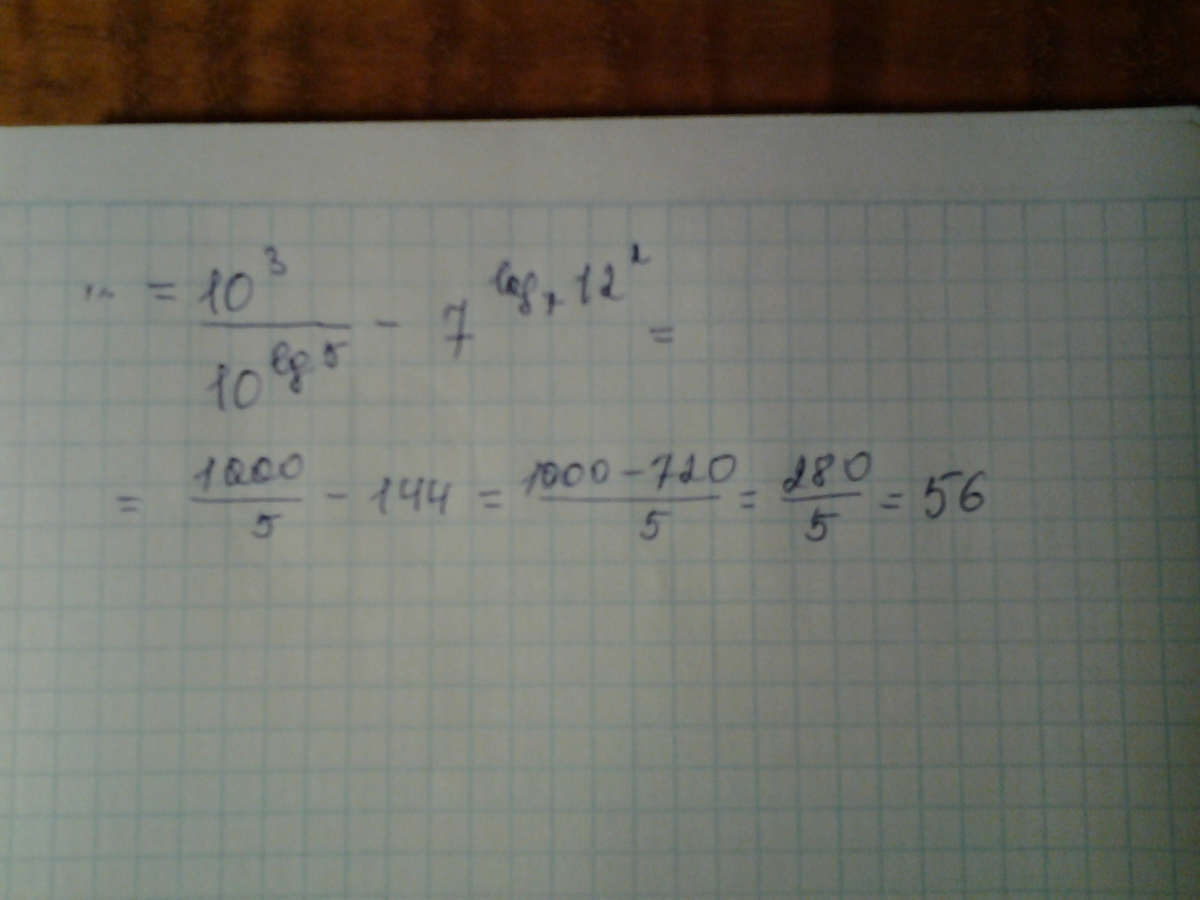 ... = 10³ / 10^(lg 5) - 7^(log₇ 12²) =
= 1000/5 - 144 = (1000 - 720)/5 = 280/5 = 56